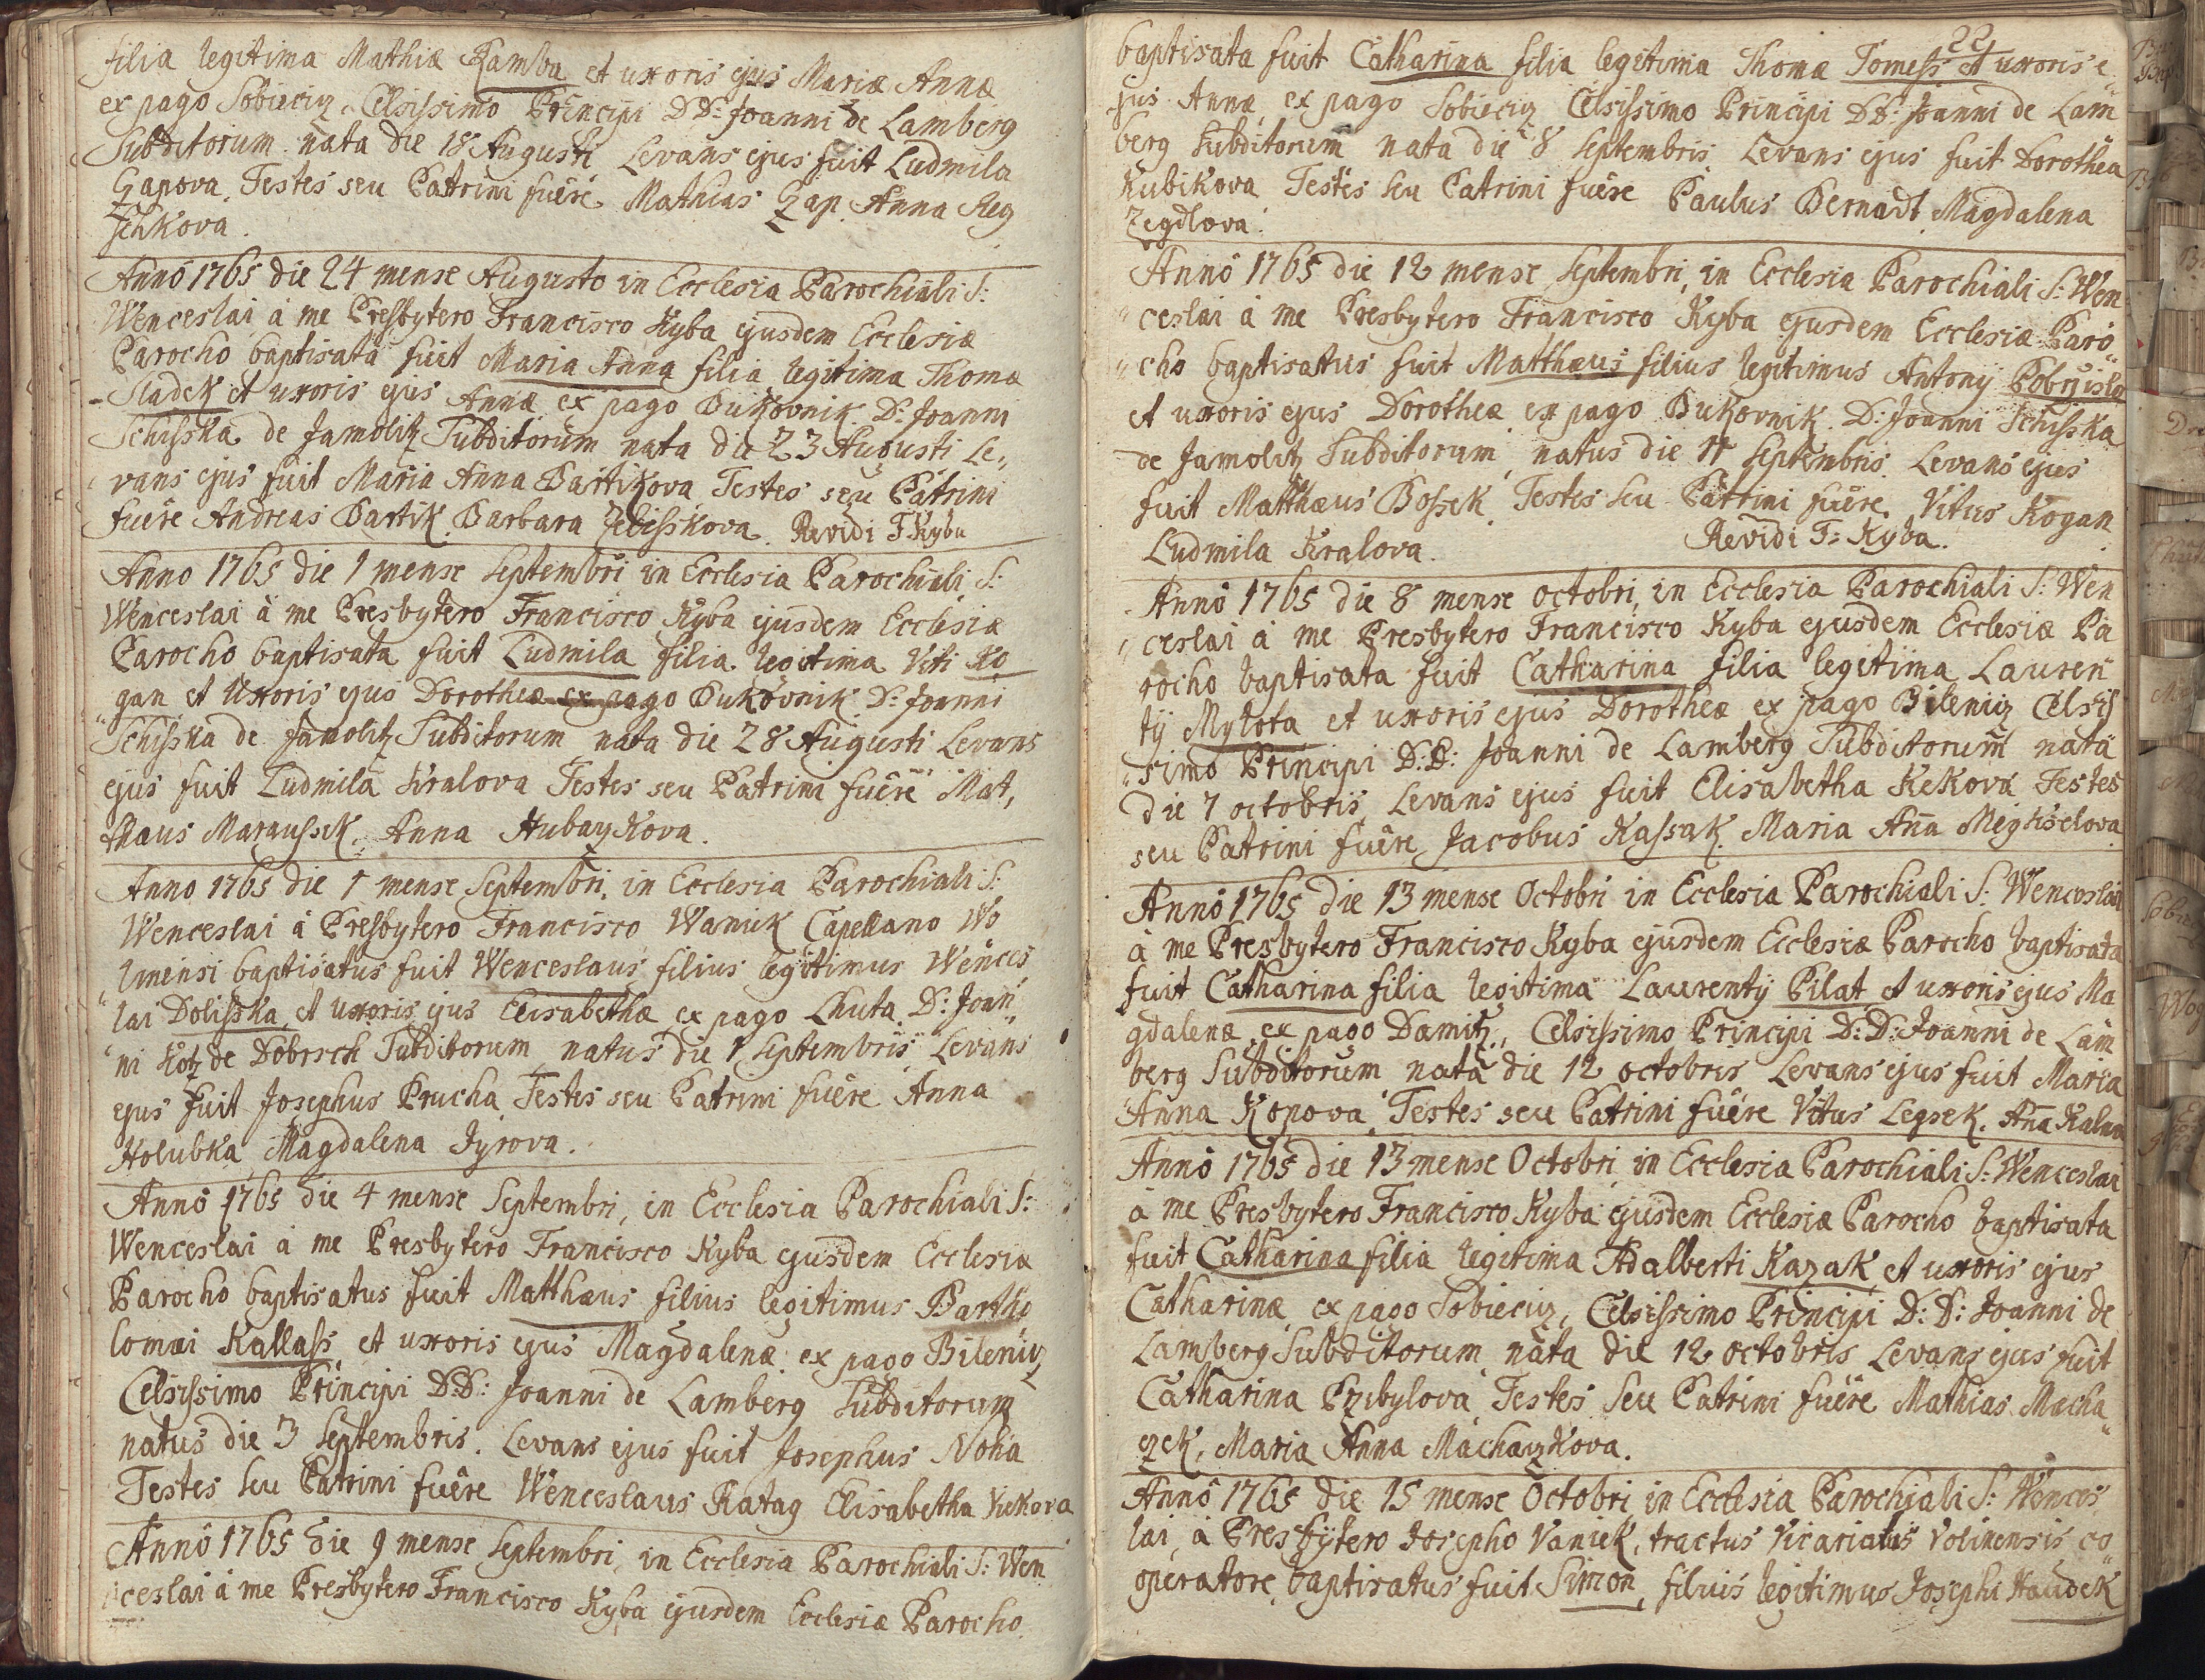 filia legitima Mathiæ Kamba et uxoris ejus Mariæ Annæ
ex pago Sobieciz, Celsissimo Principi D.D: Joanni de Lamberg
Subditorum nata die 18 Augusti Levans ejus fuit Ludmila
Czapova. Testes seu Patrini fuêre Mathias Czap. Anna Reg
schkova.
Annô 1765 die 24 mense Augusto in Ecclesia Parochiali S:
Wenceslai à me Presbytero Francisco Kyba ejusdem Ecclesiæ
Parocho baptisata fuit Maria Anna filia legitima Thomæ
Sladek et uxoris ejus Annæ ex pago Bukovnik D: Joanni
Schiska de Jamolitz Subditorum nata die 23 Augusti Le„
vans ejus fuit Maria Anna Bartikova Testes seu Patrini
fuêre Andreas Bartik. Barbara Jelisskova. Revidi F Kyba
Anno 1765 die 1 mense Septembri in Ecclesia Parochiali S:
Wenceslai à me Presbytero Francisco Kyba ejusdem Ecclesiæ
Parocho baptisata fuit Ludmila filia legitima Viti Ko
gan et Uxoris ejus Dorotheæ ex pago Bukovnik D: Joanni
Schiska de Jamolitz Subditorum nata die 28 Augusti Levans
ejus fuit Ludmila Kralova Testes seu Patrini fuêre Mat,
thæus Maraussek, Anna Hubaczkova.
Anno 1765 die 1 mense Septembri, in Ecclesia Parochiali S:
Wenceslai à Presbytero Francisco Waniek Capellano Wo
linensi baptisatus fuit Wenceslaus filius legitimus Wences
lai Dolisska et uxoris ejus Elisabethæ ex pago Lhuta D: Joan„
ni Kotz de Dobrsch Subditorum natus die 1 Septembris Levans
ejus fuit Josephus Prucha Testes seu Patrini fuêre Anna
Holubka Magdalena Jyrova.
Annô 1765 die 4 mense Septembri, in Ecclesia Parochiali S:
Wenceslai à me Presbytero Francisco Kyba ejusdem Ecclesiæ
Parocho baptisatus fuit Matthæus filius legitimus Bartho
lomæi Kallass et uxoris ejus Magdalenæ ex pago Bileniz
Celsissimo Principi D.D: Joanni de Lamberg Subditorum
natus die 3 Septembris. Levans ejus fuit Josephus Noha
Testes seu Patrini fuêre Wenceslaus Ratag Elisabetha Kekova
Annô 1765 die 9 mense Septembri in Ecclesia Parochiali S: Wen
ceslai à me Presbytero Francisco Kyba ejusdem Ecclesiæ Parocho
22
baptisata fuit Catharina filia legitima Thomæ Tomess et uxoris e
jus Annæ ex pago Sobieciz Celsissimo Principi D.D: Joanni de Lam
berg Subditorum nata die 8 Septembris Levans ejus fuit Dorothea
Kubikova Testes seu Patrini fuêre Paulus Bernadt Magdalena
Zegdlova.
Annô 1765 die 12 mense Septembri, in Ecclesia Parochiali S: Wen
ceslai à me Presbytero Francisco Kyba ejusdem Ecclesiæ Paro„
cho baptisatus fuit Matthæus filius legitimus Antonij Pobrisla
et uxoris ejus Dorotheæ ex pago Bukovnik D: Joanni Schiska
de Jamolitz Subditorum natus die 11 Septembris Levans ejus
fuit Matthæus Bossek. Testes seu Patrini fuêre. Vitus Kogan
Ludmila Kralova. Revidi F: Kyba.
Annô 1765 die 8 mense octobri, in Ecclesia Parochiali S: Wen
ceslai à me Presbytero Francisco Kyba ejusdem Ecclesiæ Pa
rocho baptisata fuit Catharina filia legitima Lauren
tij Mylota et uxoris ejus Dorotheæ ex pago Bileniz Celsis
simo Principi D:D: Joanni de Lamberg Subditorum nata
die 7 octobris, Levans ejus fuit Elisabetha Kekova Testes
seu Patrini fuêre Jacobus Kassak. Maria Aña Meghselova
Annô 1765 die 13 mense Octobri in Ecclesia Parochiali S: Wenceslai
à me Presbytero Francisco Kyba ejusdem Ecclesiæ Parocho baptisata
fuit Catharina filia legitima Laurentij Pilat et uxoris ejus Ma
gdalenæ ex pago Damitz, Celsissimo Principi D:D: Joanni de Lam
berg Subditorum nata die 12 octobris Levans ejus fuit Maria
Anna Kopova. Testes seu Patrini fuêre Vitus Legsek. Aña
Annô 1765 die 13 mense Octobri in Ecclesia Parochiali S: Wenceslai
à me Presbytero Francisco Kyba ejusdem Ecclesiæ Parocho baptisata
fuit Catharina filia legitima Adalberti Kazak et uxoris ejus
Catharinæ ex pago Sobieciz, Celsissimo Principi D:D: Joanni de
Lamberg Subditorum nata die 12 octobris Levans ejus fuit
Catharina Przibylova Testes seu Patrini fuêre Mathias Macha„
czek, Maria Anna Machaczkova.
Annô 1765 die 15 mense Octobri in Ecclesia Parochiali S: Wences
lai, à Presbytero Josepho Vaniek, tractus Vicariatus Volinensis co
operatore baptisatus fuit Simon, filius legitimus Josephi Haudek